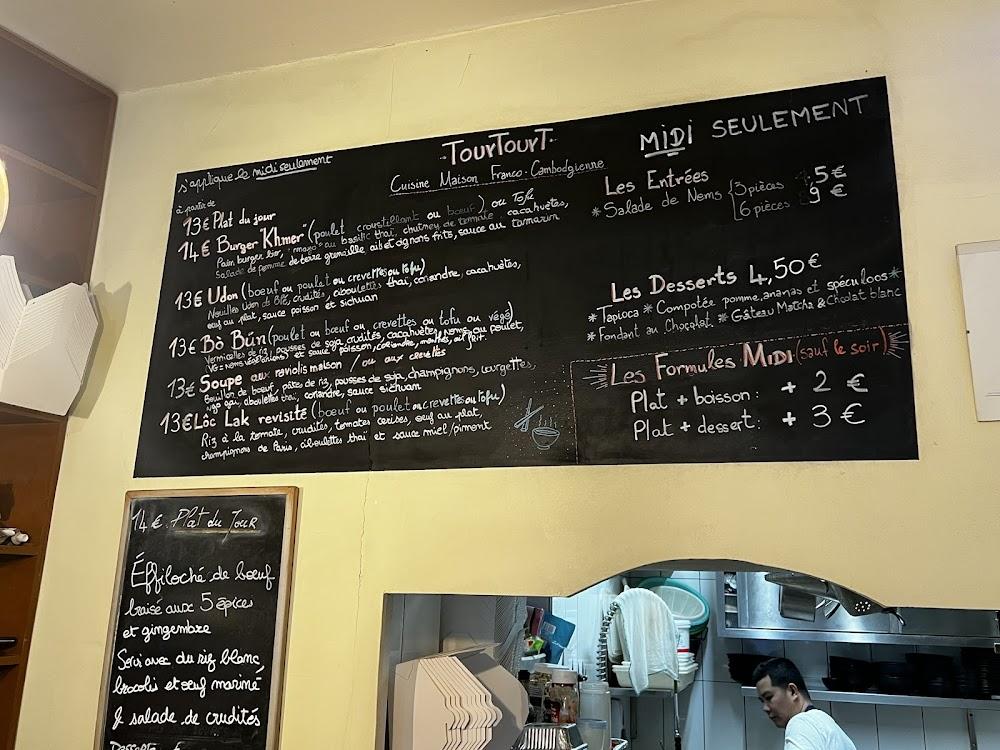 s'applique le midi seulement
à partir de
TourTourT
Cuisine Maison Franco-Cambodgienne
MIDI SEULEMENT
13€ Plat du jour
14€ Burger "Khmer" (poulet croustillant ou boeuf) ou Tofu
Pain burger bio, "mayo" au basilic thaï, chutney de tomate, cacahuètes,
Salade de pomme de terre grenaille, ail et oignons frits, sauce au tamarin
13€ Udon (boeuf ou poulet ou crevettes ou tofu)
Nouilles Udon de Blé, crudités, ciboulettes thaï, coriandre, cacahuètes,
oeuf au plat, sauce poisson et sichuan
13€ Bò Bún (poulet ou boeuf ou crevettes ou tofu ou végé)
Vermicelles de riz, pousses de soja, crudités, cacahuètes, nems au poulet,
VG = nems végétariens) et sauce poisson, coriandre, menthe,
13€ Soupe aux raviolis maison / ou aux crevettes
Bouillon de boeuf, pâtes de riz, pousses de soja, champignons, courgettes,
ngo gai, ciboulettes thaï, coriandre, sauce sichuan
13€ Lôc Lak revisité (boeuf ou poulet ou crevettes ou tofu)
Riz à la tomate, crudités, tomates cerises, oeuf au plat,
champignons de Paris, ciboulettes thaï et sauce miel/piment
Les Entrées
* Salade de Nems { 3 pièces 5€
6 pièces 9€
Les Desserts 4,50€
* Tapioca * Compotée pomme, ananas et spéculoos *
* Fondant au Chocolat * Gâteau Matcha & Chocolat blanc
Les Formules MIDI (sauf le soir)
Plat + boisson : + 2 €
Plat + dessert : + 3 €
14€ Plat du Jour
Éffiloché de boeuf
braisé aux 5 épices
et gingembre
Servi avec du riz blanc,
brocoli et oeuf mariné
& salade de crudités